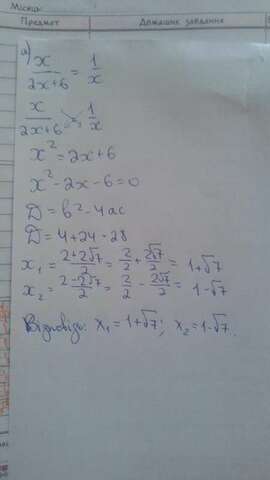 Місяць
Предмет Домашнє завдання
а) x/(2x+6) = 1/x
x/(2x+6) = 1/x
x² = 2x+6
x² - 2x - 6 = 0
D = b² - 4ac
D = 4+24 = 28
x₁ = (2+2√7)/2 = 2/2 + 2√7/2 = 1+√7
x₂ = (2-2√7)/2 = 2/2 - 2√7/2 = 1-√7
Відповідь: x₁ = 1+√7; x₂ = 1-√7.